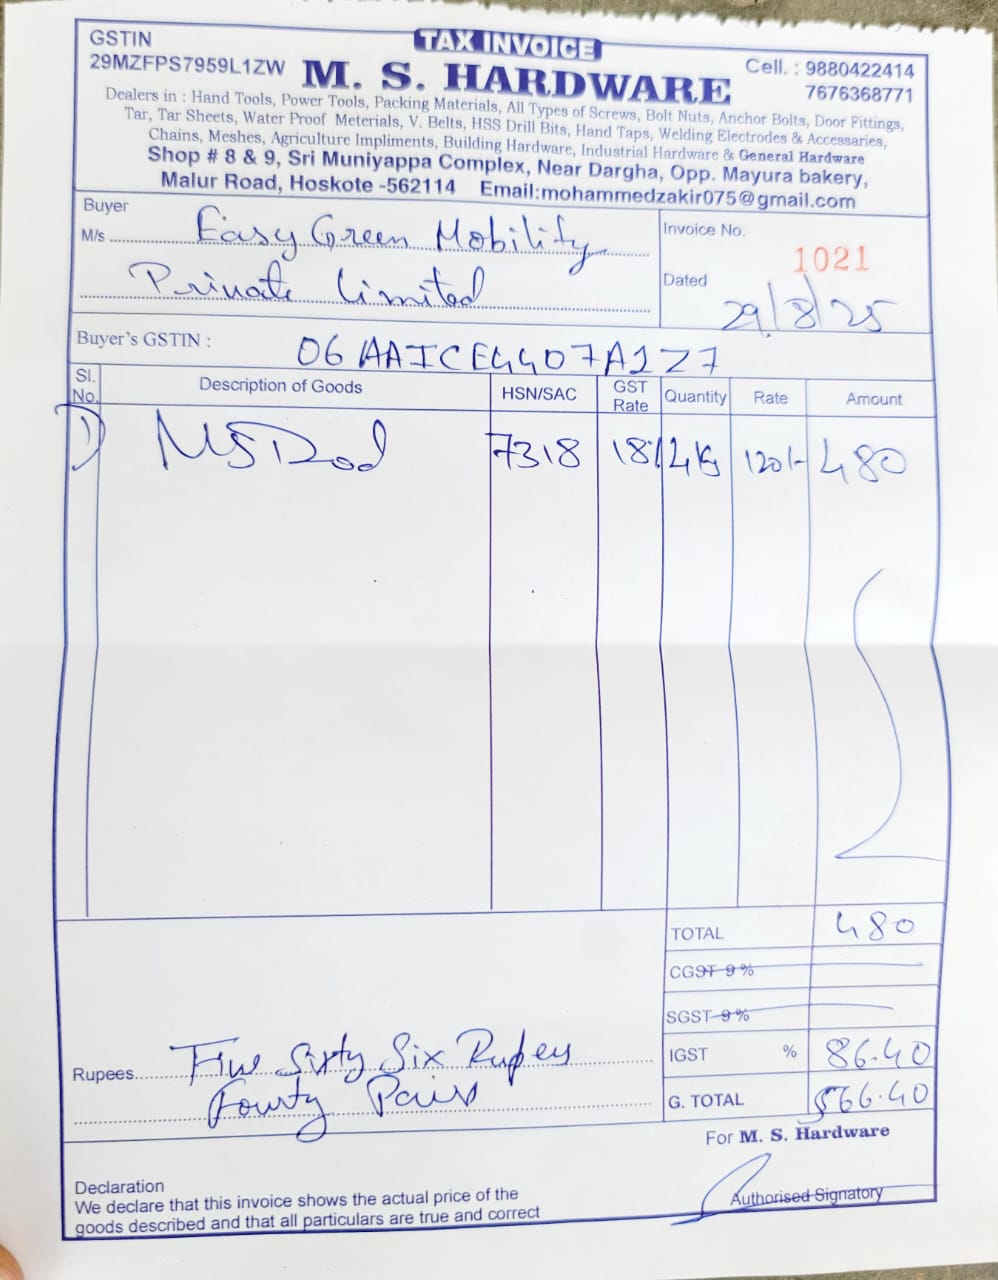 TAX INVOICE
GSTIN
29MZFPS7959L1ZW
M. S. HARDWARE
Cell. : 9880422414
7676368771
Dealers in : Hand Tools, Power Tools, Packing Materials, All Types of Screws, Bolt Nuts, Anchor Bolts, Door Fittings,
Tar, Tar Sheets, Water Proof Meterials, V. Belts, HSS Drill Bits, Hand Taps, Welding Electrodes & Accessaries,
Chains, Meshes, Agriculture Impliments, Building Hardware, Industrial Hardware & General Hardware
Shop # 8 & 9, Sri Muniyappa Complex, Near Dargha, Opp. Mayura bakery,
Malur Road, Hoskote -562114 Email:mohammedzakir075@gmail.com
Buyer
M/s Easy Green Mobility
Private Limited
Invoice No.
1021
Dated
29/8/25
Buyer's GSTIN : 06AAICE4407A1Z7
Sl. No. Description of Goods HSN/SAC GST Rate Quantity Rate Amount
1) MS Rod 7318 18% 4kg 120/- 480
TOTAL 480
CGST 9%
SGST 9%
IGST % 86.40
G. TOTAL 566.40
Rupees Five Sixty Six Rupees
Fourty Pais
For M. S. Hardware
Authorised Signatory
Declaration
We declare that this invoice shows the actual price of the
goods described and that all particulars are true and correct